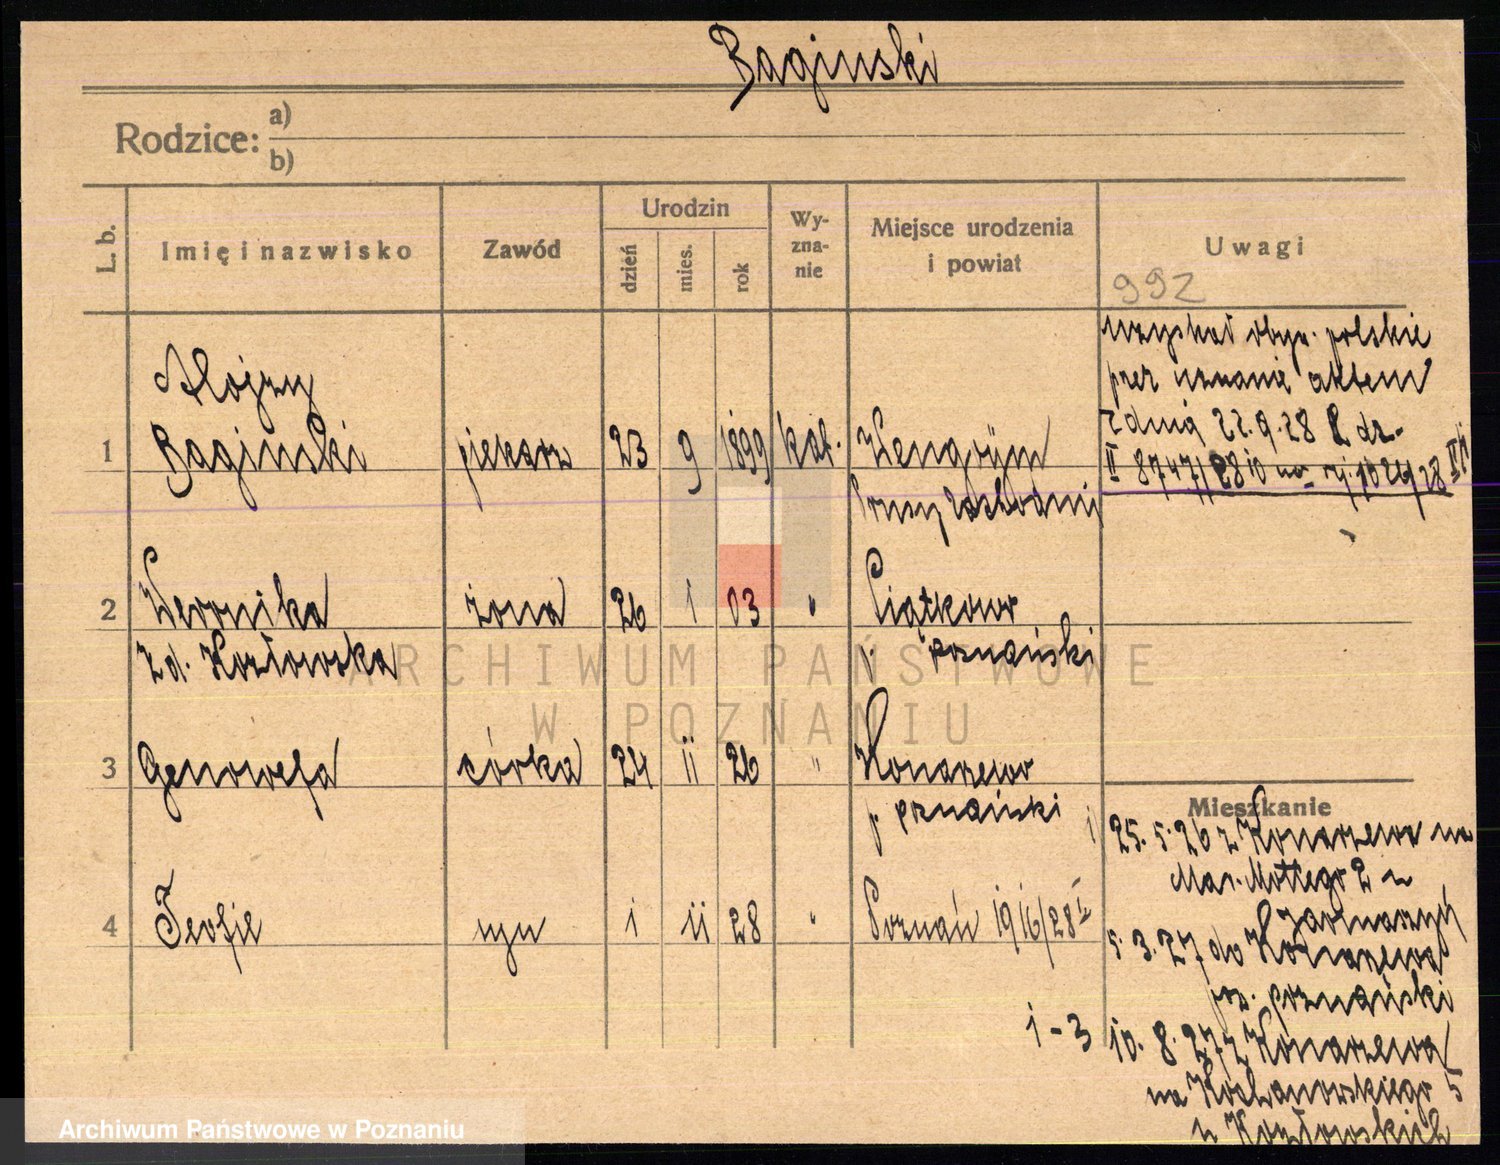 Baginski
Rodzice: a)
b)
L. b.
Imię i nazwisko
Zawód
Urodzin
dzień
mies.
rok
Wy-
zna-
nie
Miejsce urodzenia
i powiat
Uwagi
992
uzyskał obyw. polskie
przez uznanie aktem
z dnia 22.9.28 L dz.
II 8747/28
Alojzy
1 Baginski piekarz 23 9 1899 kat.
Prusy Zachodni
2 Weronika żona 26 1 03 " Piątkowo
zd. Kozłowska p. poznański
3 Genowefa córka 24 11 26 " Konarzewo
p. poznański
4 Teofil syn 1 11 28 " Poznań 1916/28 I
Mieszkanie
1 25.5.26 z Konarzewa na
Mar. Mottego 2 u
5.3.27 do Konarzewa
pow. poznański
1-3 10.8.27 z Konarzewa
na Kochanowskiego 5
u Kozłowskich
ARCHIWUM PAŃSTWOWE
W POZNANIU
Archiwum Państwowe w Poznaniu